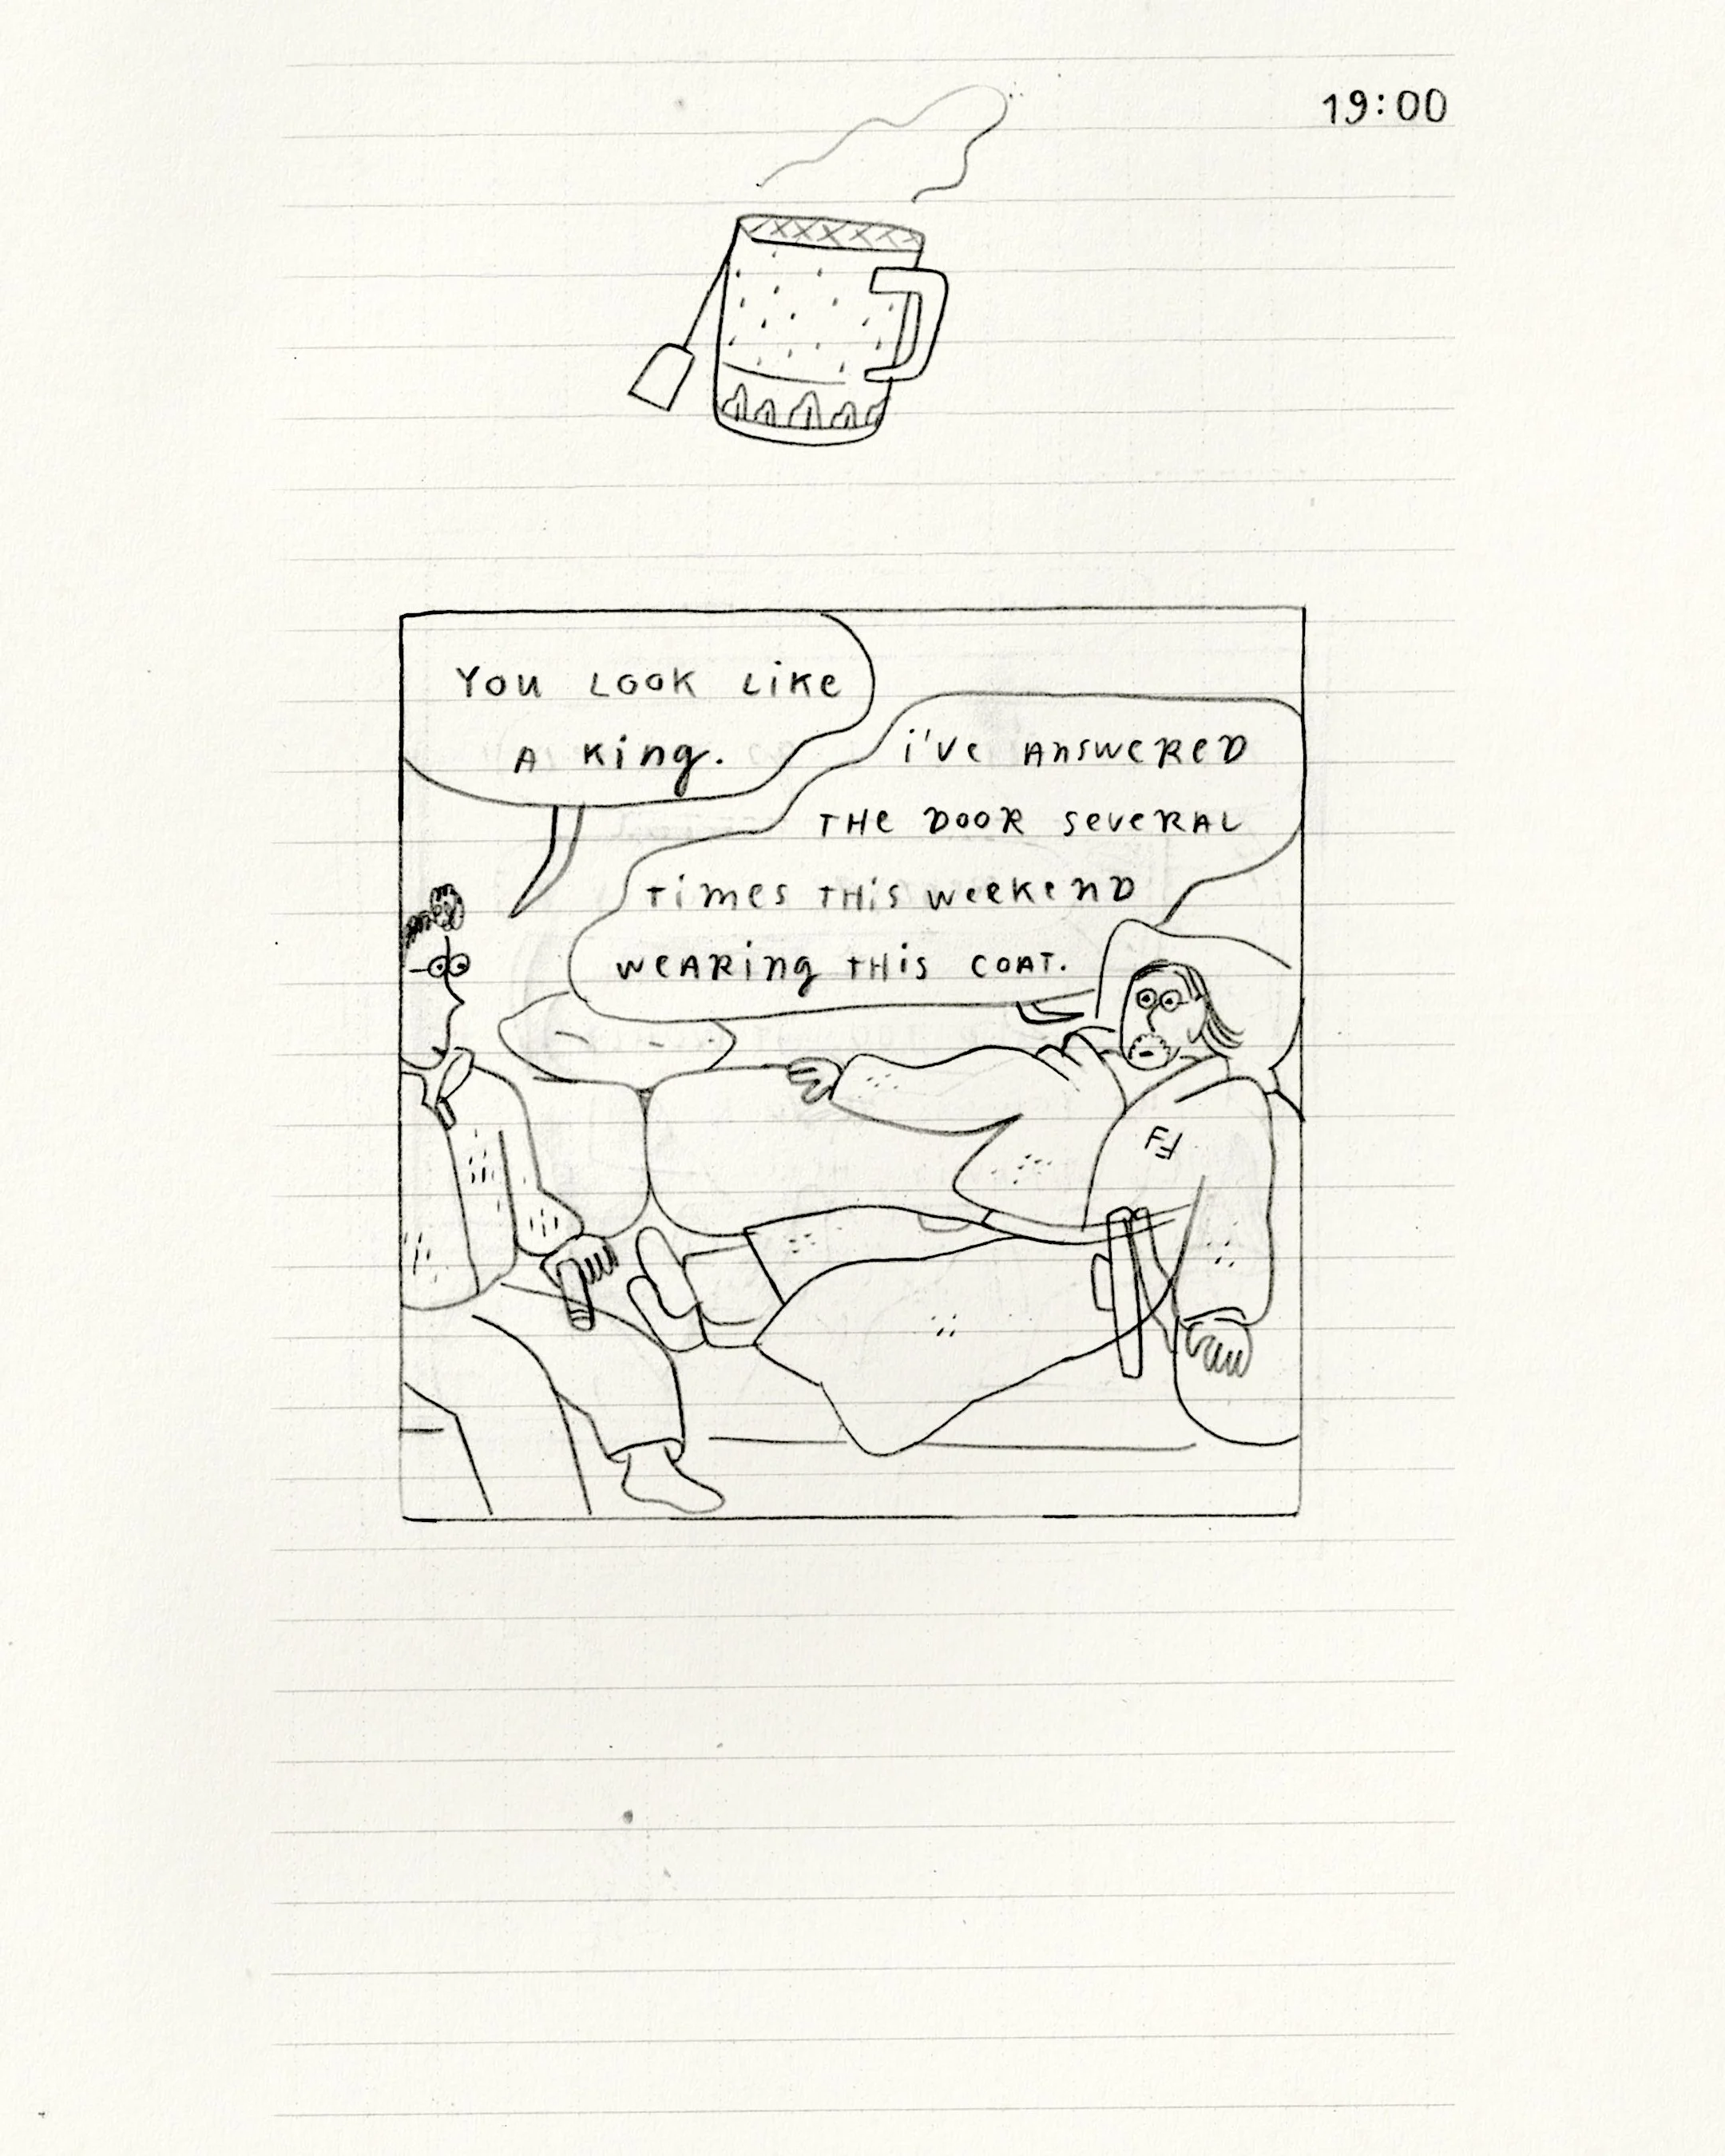 19:00
You LOOK LiKe
A King.
i've AnSWeReD
THe DOOR SeveRAL
Times THiS weekenD
WeARing THiS COAT.